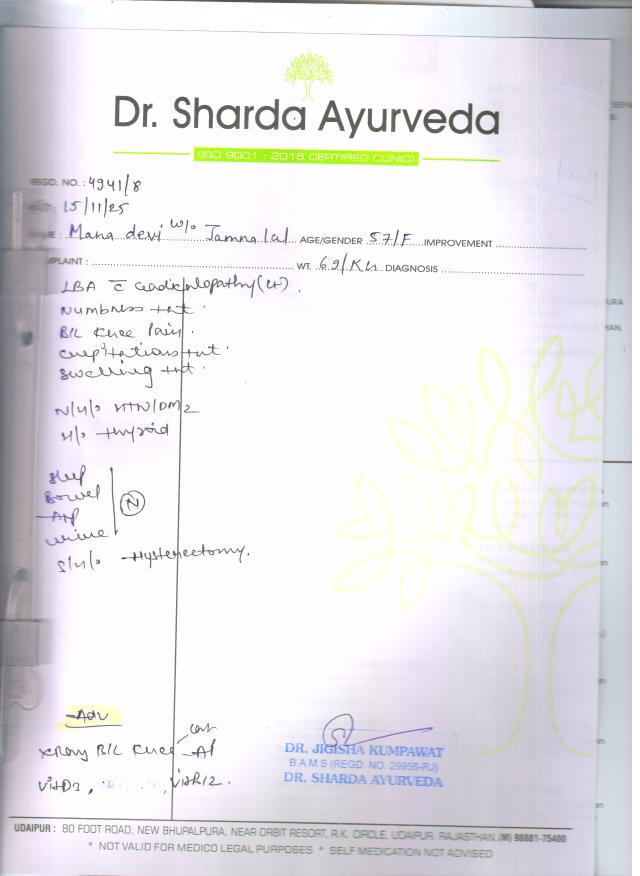 Dr. Sharda Ayurveda
(ISO 9001 : 2015 CERTIFIED CLINIC)
REGD. NO. : 4941/8
15/11/25
Mana devi w/o Jamna lal AGE/GENDER 57/F IMPROVEMENT
PLAINT : WT. 69/Kg DIAGNOSIS
LBA c̄ Radiculopathy (Lt).
Numbness +nt.
B/L Knee Pain.
Crepitations +nt.
Swelling +nt.
N/H/o HTN/DM2
H/o thyroid
Sleep
Bowel
App
Urine
N
S/H/o - Hysterectomy.
Adv
Xray B/L Knee AP
VitD3, VitB12.
DR. JIGISHA KUMPAWAT
B.A.M.S (REGD. NO. 29956-RJ)
DR. SHARDA AYURVEDA
UDAIPUR : 80 FOOT ROAD, NEW BHUPALPURA, NEAR ORBIT RESORT, R.K. CIRCLE, UDAIPUR, RAJASTHAN. (M) 98881-75400
* NOT VALID FOR MEDICO LEGAL PURPOSES * SELF MEDICATION NOT ADVISED